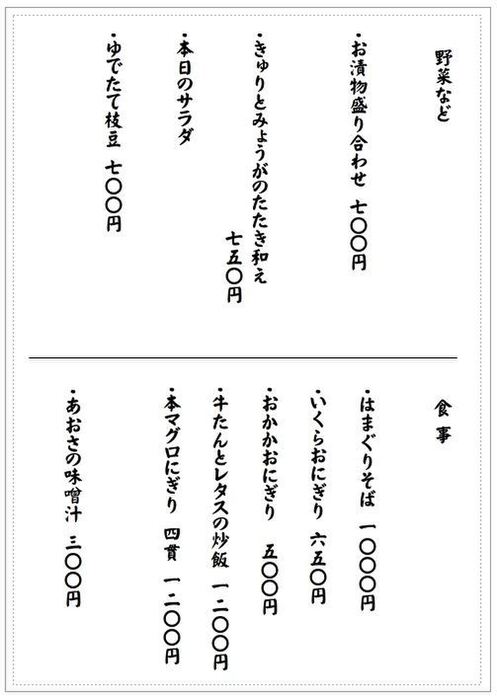 野菜など
・お漬物盛り合わせ 七〇〇円
・きゅりとみょうがのたたき和え
七五〇円
・本日のサラダ
・ゆでたて枝豆 七〇〇円
食事
・はまぐりそば 一〇〇〇円
・いくらおにぎり 六五〇円
・おかかおにぎり 五〇〇円
・牛たんとレタスの炒飯 一二〇〇円
・本マグロにぎり 四貫 一二〇〇円
・あおさの味噌汁 三〇〇円